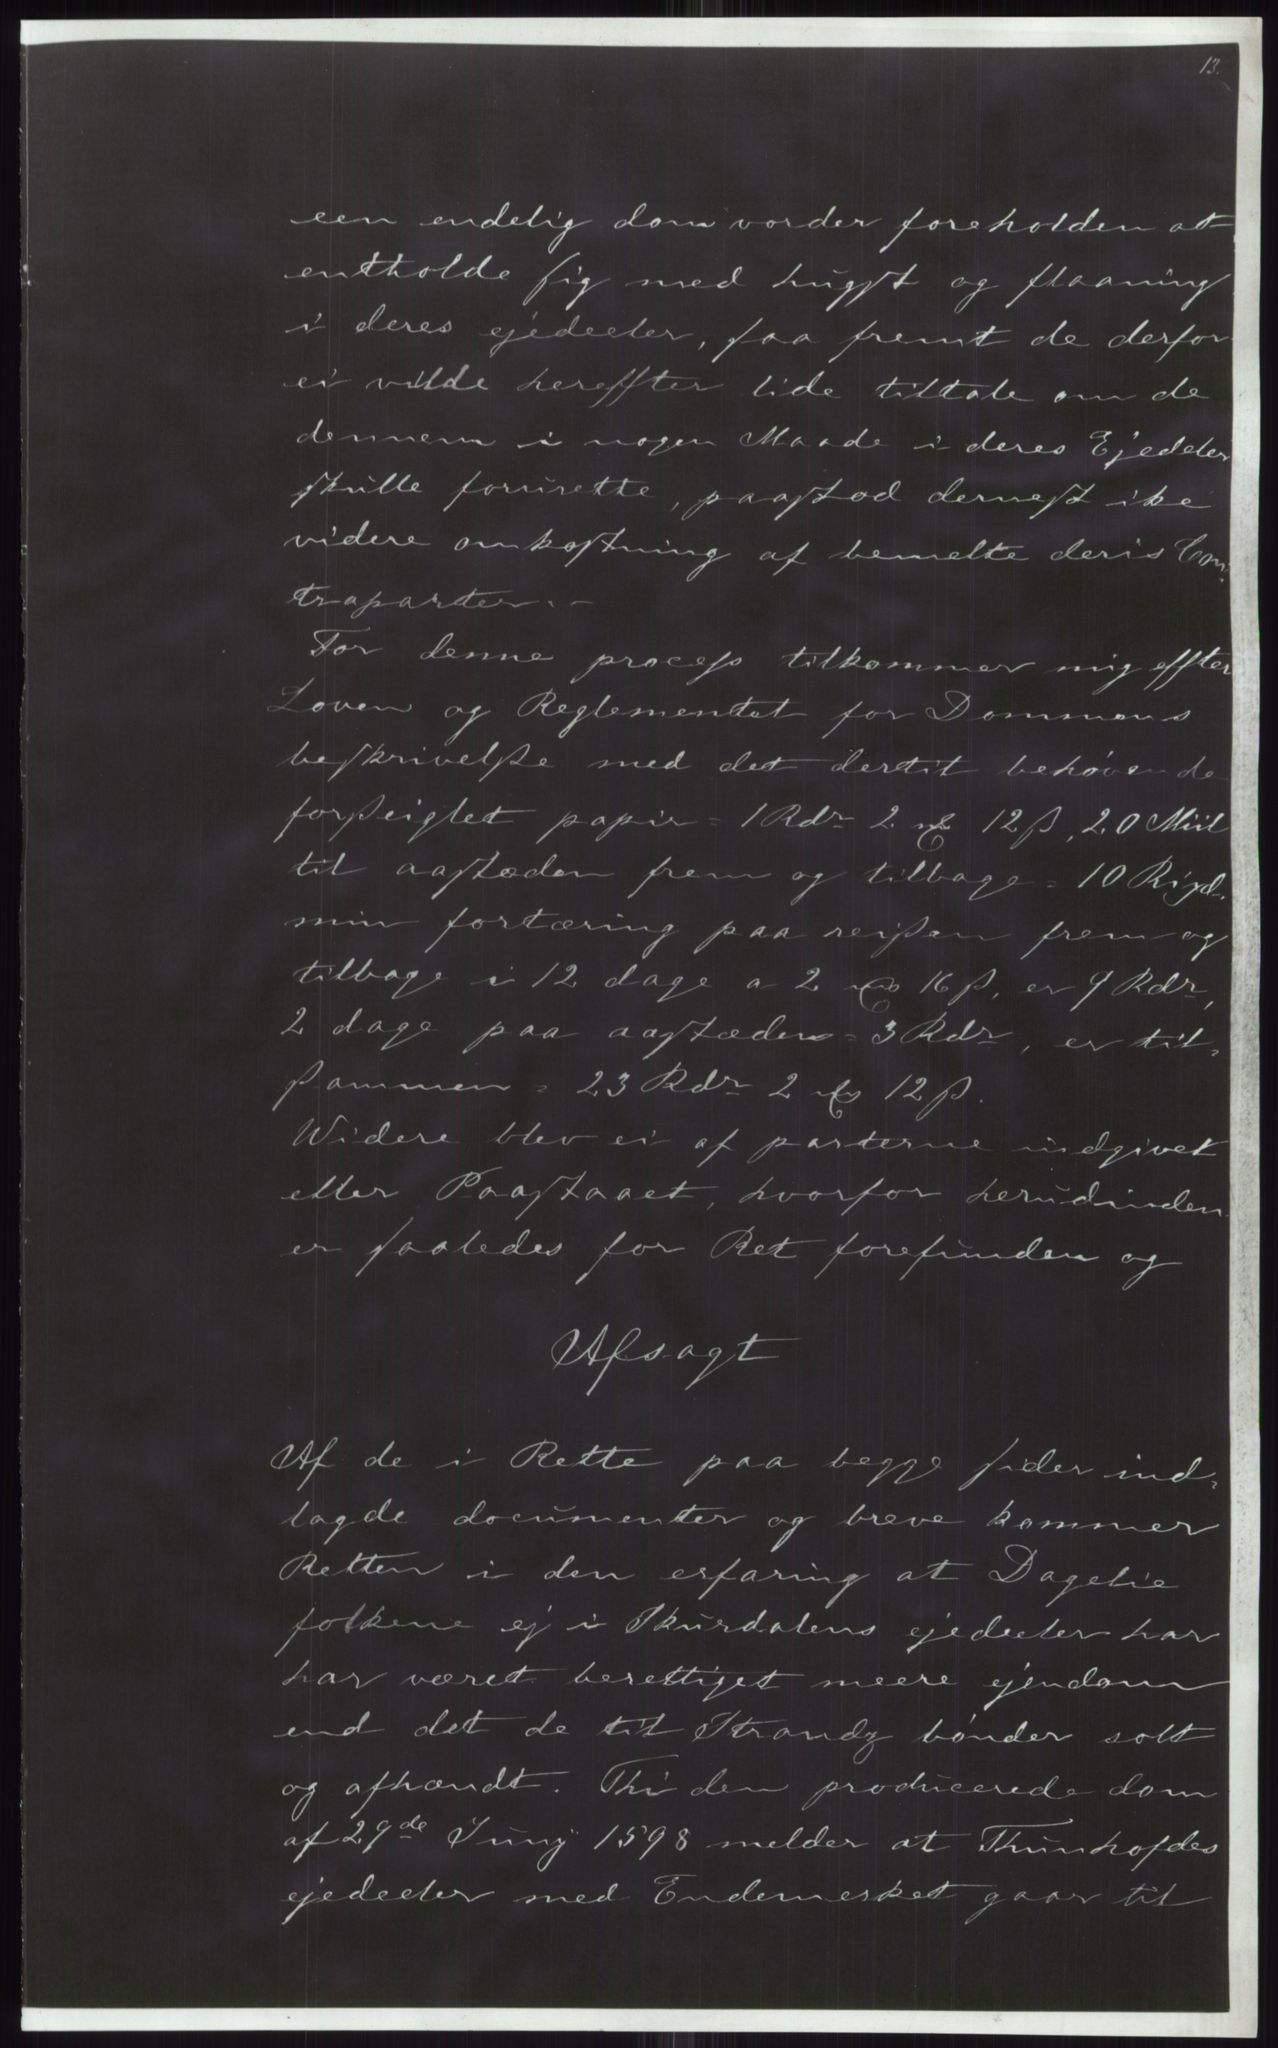 13.
een endelig dom vorder foreholden at
entholde sig med hugst og flaaning
i deres ejedeeler, saa fremt de derfor
ei vilde hereffter lide tiltale om de
dennem i nogen Maade i deres Ejedeler
skulle forurette, paastod dernest ike
videre omkostning af bemelte deris Con-
traparter.-
For denne process tilkommer mig effter
Loven og Reglementet for Dommens
beskrivelsse med det dertil behøvende
forsseiglet papir = 1 Rdr 2 mk 12 ß, 20 Miil
til aastæden frem og tilbage = 10 Rigd.
min fortæring paa reissen frem og
tilbage i 12 dage a 2 mk 16 ß, er 9 Rdr,
2 dage paa aastæden = 3 Rdr, er til-
sammen = 23 Rdr 2 mk 12 ß.
Widere blev ei af parterne indgivet
eller Paastaaet, hvorfor herudinden
er saaledes for Ret forefunden og
Afsagt
Af de i Rette paa begge sider ind-
lagde documenter og breve kommer
Retten i den erfaring at Dagelie
folkene ej i Skurdalens ejedeeler har
har været berettiget meere ejendom
end det de til Strandz bönder solt
og afhændt. Thi den producerede dom
af 29de Juny 1598 melder at Thunhofdes
ejedeeler med Endemerket gaar til